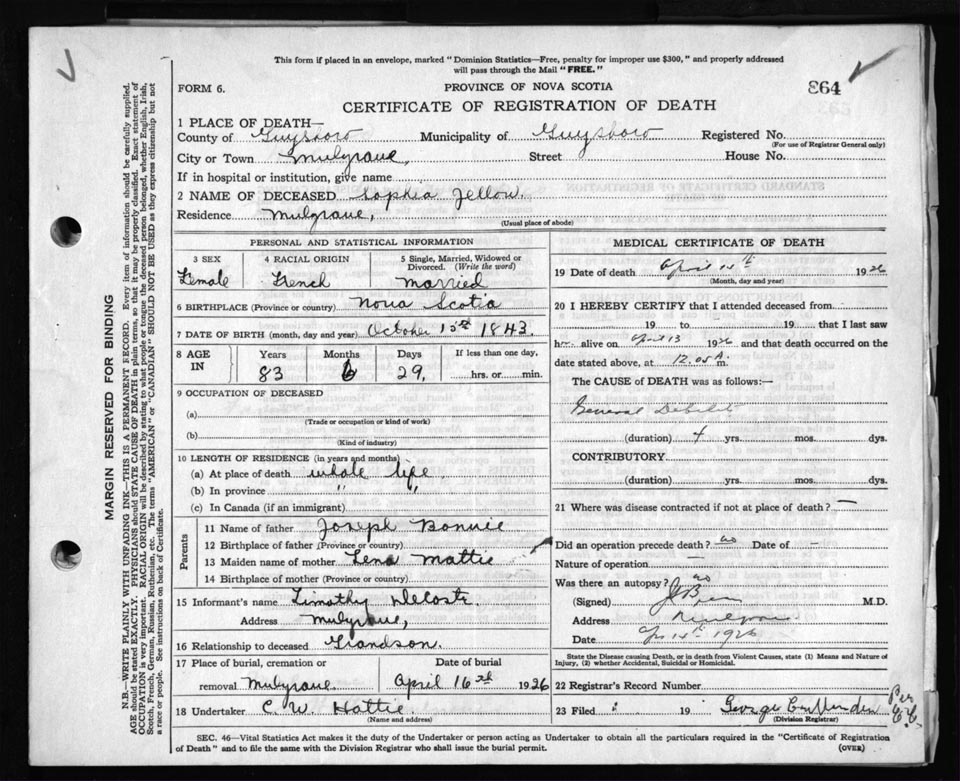 This form if placed in an envelope, marked "Dominion Statistics—Free, penalty for improper use $300," and properly addressed
will pass through the Mail "FREE."
FORM 6.
PROVINCE OF NOVA SCOTIA
864
CERTIFICATE OF REGISTRATION OF DEATH
1 PLACE OF DEATH—
County of Guysboro Municipality of Guysboro Registered No.
(For use of Registrar General only)
City or Town Mulgrave, Street House No.
If in hospital or institution, give name
2 NAME OF DECEASED Sophia
Residence Mulgrave,
(Usual place of abode)
MARGIN RESERVED FOR BINDING
N.B.—WRITE PLAINLY WITH UNFADING INK—THIS IS A PERMANENT RECORD. Every item of information should be carefully supplied.
AGE should be stated EXACTLY. PHYSICIANS should STATE CAUSE OF DEATH in plain terms, so that it may be properly classified. Exact statement of
OCCUPATION is very important. RACIAL ORIGIN will be described by stating to what people or tongue the deceased person belonged, whether English, Irish,
Scotch, French, German, Russian, Ruthenian, etc. The terms "AMERICAN" or "CANADIAN" SHOULD NOT BE USED as they express citizenship but not
a race or people. See instructions on back of Certificate.
PERSONAL AND STATISTICAL INFORMATION
3 SEX 4 RACIAL ORIGIN 5 Single, Married, Widowed or
Divorced. (Write the word)
Female French Married
6 BIRTHPLACE (Province or country) Nova Scotia
7 DATE OF BIRTH (month, day and year) October 15th 1843.
8 AGE IN Years Months Days If less than one day,
83 6 29, hrs. or min.
9 OCCUPATION OF DECEASED
(a)
(Trade or occupation or kind of work)
(b)
(Kind of industry)
10 LENGTH OF RESIDENCE (in years and months)
(a) At place of death whole life
(b) In province " "
(c) In Canada (if an immigrant)
Parents
11 Name of father Joseph Bonnie
12 Birthplace of father (Province or country)
13 Maiden name of mother Lena Mattie
14 Birthplace of mother (Province or country)
15 Informant's name Timothy DeCoste
Address Mulgrave,
16 Relationship to deceased Grandson.
17 Place of burial, cremation or Date of burial
removal Mulgrave. April 16th 1926
18 Undertaker C. W. Hattie
(Name and address)
MEDICAL CERTIFICATE OF DEATH
19 Date of death April 14th 1926
(Month, day and year)
20 I HEREBY CERTIFY that I attended deceased from
19 to 19 that I last saw
h alive on April 13 1926 and that death occurred on the
date stated above, at 12.05 A. m.
The CAUSE of DEATH was as follows:—
General Debility
(duration) 4 yrs. mos. dys.
CONTRIBUTORY
(duration) yrs. mos. dys.
21 Where was disease contracted if not at place of death? —
Did an operation precede death? no Date of —
Nature of operation —
Was there an autopsy? no
(Signed) M.D.
Address Mulgrave
Date Ap 15th 1926
State the Disease causing Death, or in death from Violent Causes, state (1) Means and Nature of
Injury, (2) whether Accidental, Suicidal or Homicidal.
22 Registrar's Record Number
23 Filed 19 George
(Division Registrar)
Per
SEC. 46—Vital Statistics Act makes it the duty of the Undertaker or person acting as Undertaker to obtain all the particulars required in the "Certificate of Registration
of Death" and to file the same with the Division Registrar who shall issue the burial permit. (OVER)